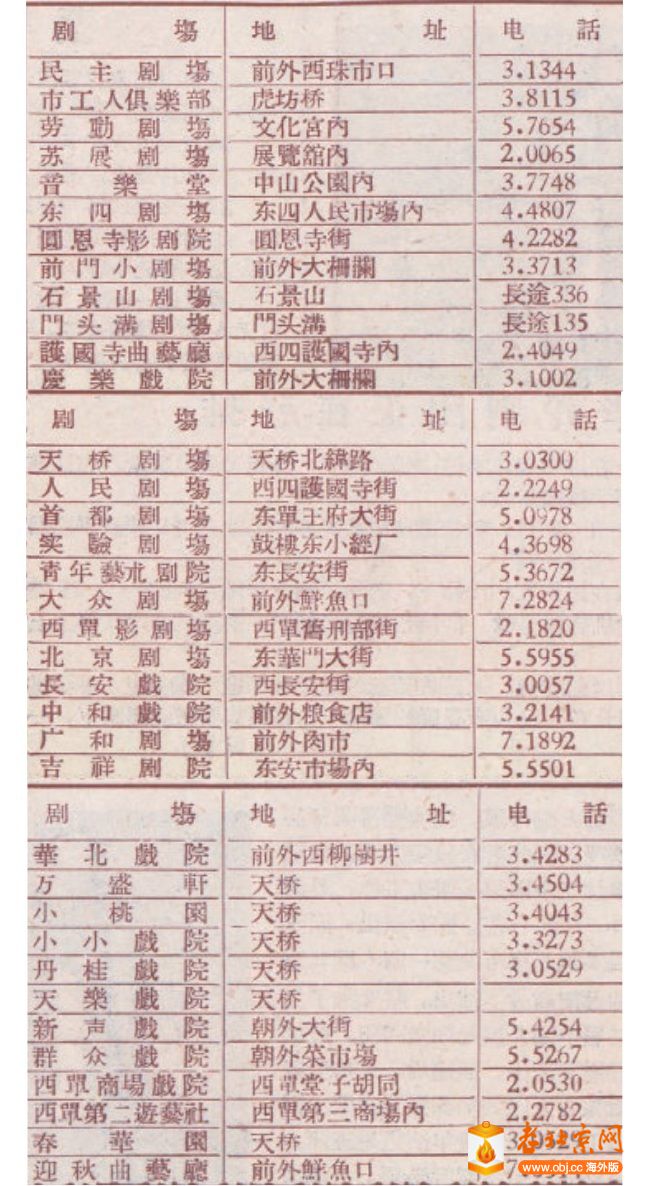 剧塲 地址 电話
民主剧塲 前外西珠市口 3.1344
市工人俱樂部 虎坊桥 3.8115
劳動剧塲 文化宮內 5.7654
苏展剧塲 展覽舘內 2.0065
音樂堂 中山公園內 3.7748
东四剧塲 东四人民市塲內 4.4807
圓恩寺影剧院 圓恩寺街 4.2282
前門小剧塲 前外大柵欄 3.3713
石景山剧塲 石景山 長途336
門头溝剧塲 門头溝 長途135
護國寺曲藝廳 西四護國寺內 2.4049
慶樂戲院 前外大柵欄 3.1002
剧塲 地址 电話
天桥剧塲 天桥北緯路 3.0300
人民剧塲 西四護國寺街 2.2249
首都剧塲 东單王府大街 5.0978
实驗剧塲 鼓樓东小經厂 4.3698
青年藝朮剧院 东長安街 5.3672
大众剧塲 前外鮮魚口 7.2824
西單影剧塲 西單舊刑部街 2.1820
北京剧塲 东華門大街 5.5955
長安戲院 西長安街 3.0057
中和戲院 前外粮食店 3.2141
广和剧塲 前外肉市 7.1892
吉祥剧院 东安市場內 5.5501
剧塲 地址 电話
華北戲院 前外西柳樹井 3.4283
万盛軒 天桥 3.4504
小桃園 天桥 3.4043
小小戲院 天桥 3.3273
丹桂戲院 天桥 3.0529
天樂戲院 天桥
新声戲院 朝外大街 5.4254
群众戲院 朝外菜市塲 5.5267
西單商塲戲院 西單堂子胡同 2.0530
西單第二遊藝社 西單第三商塲內 2.2782
春華園 天桥
迎秋曲藝廳 前外鮮魚口
老北京网
www.obj.cc 海外版